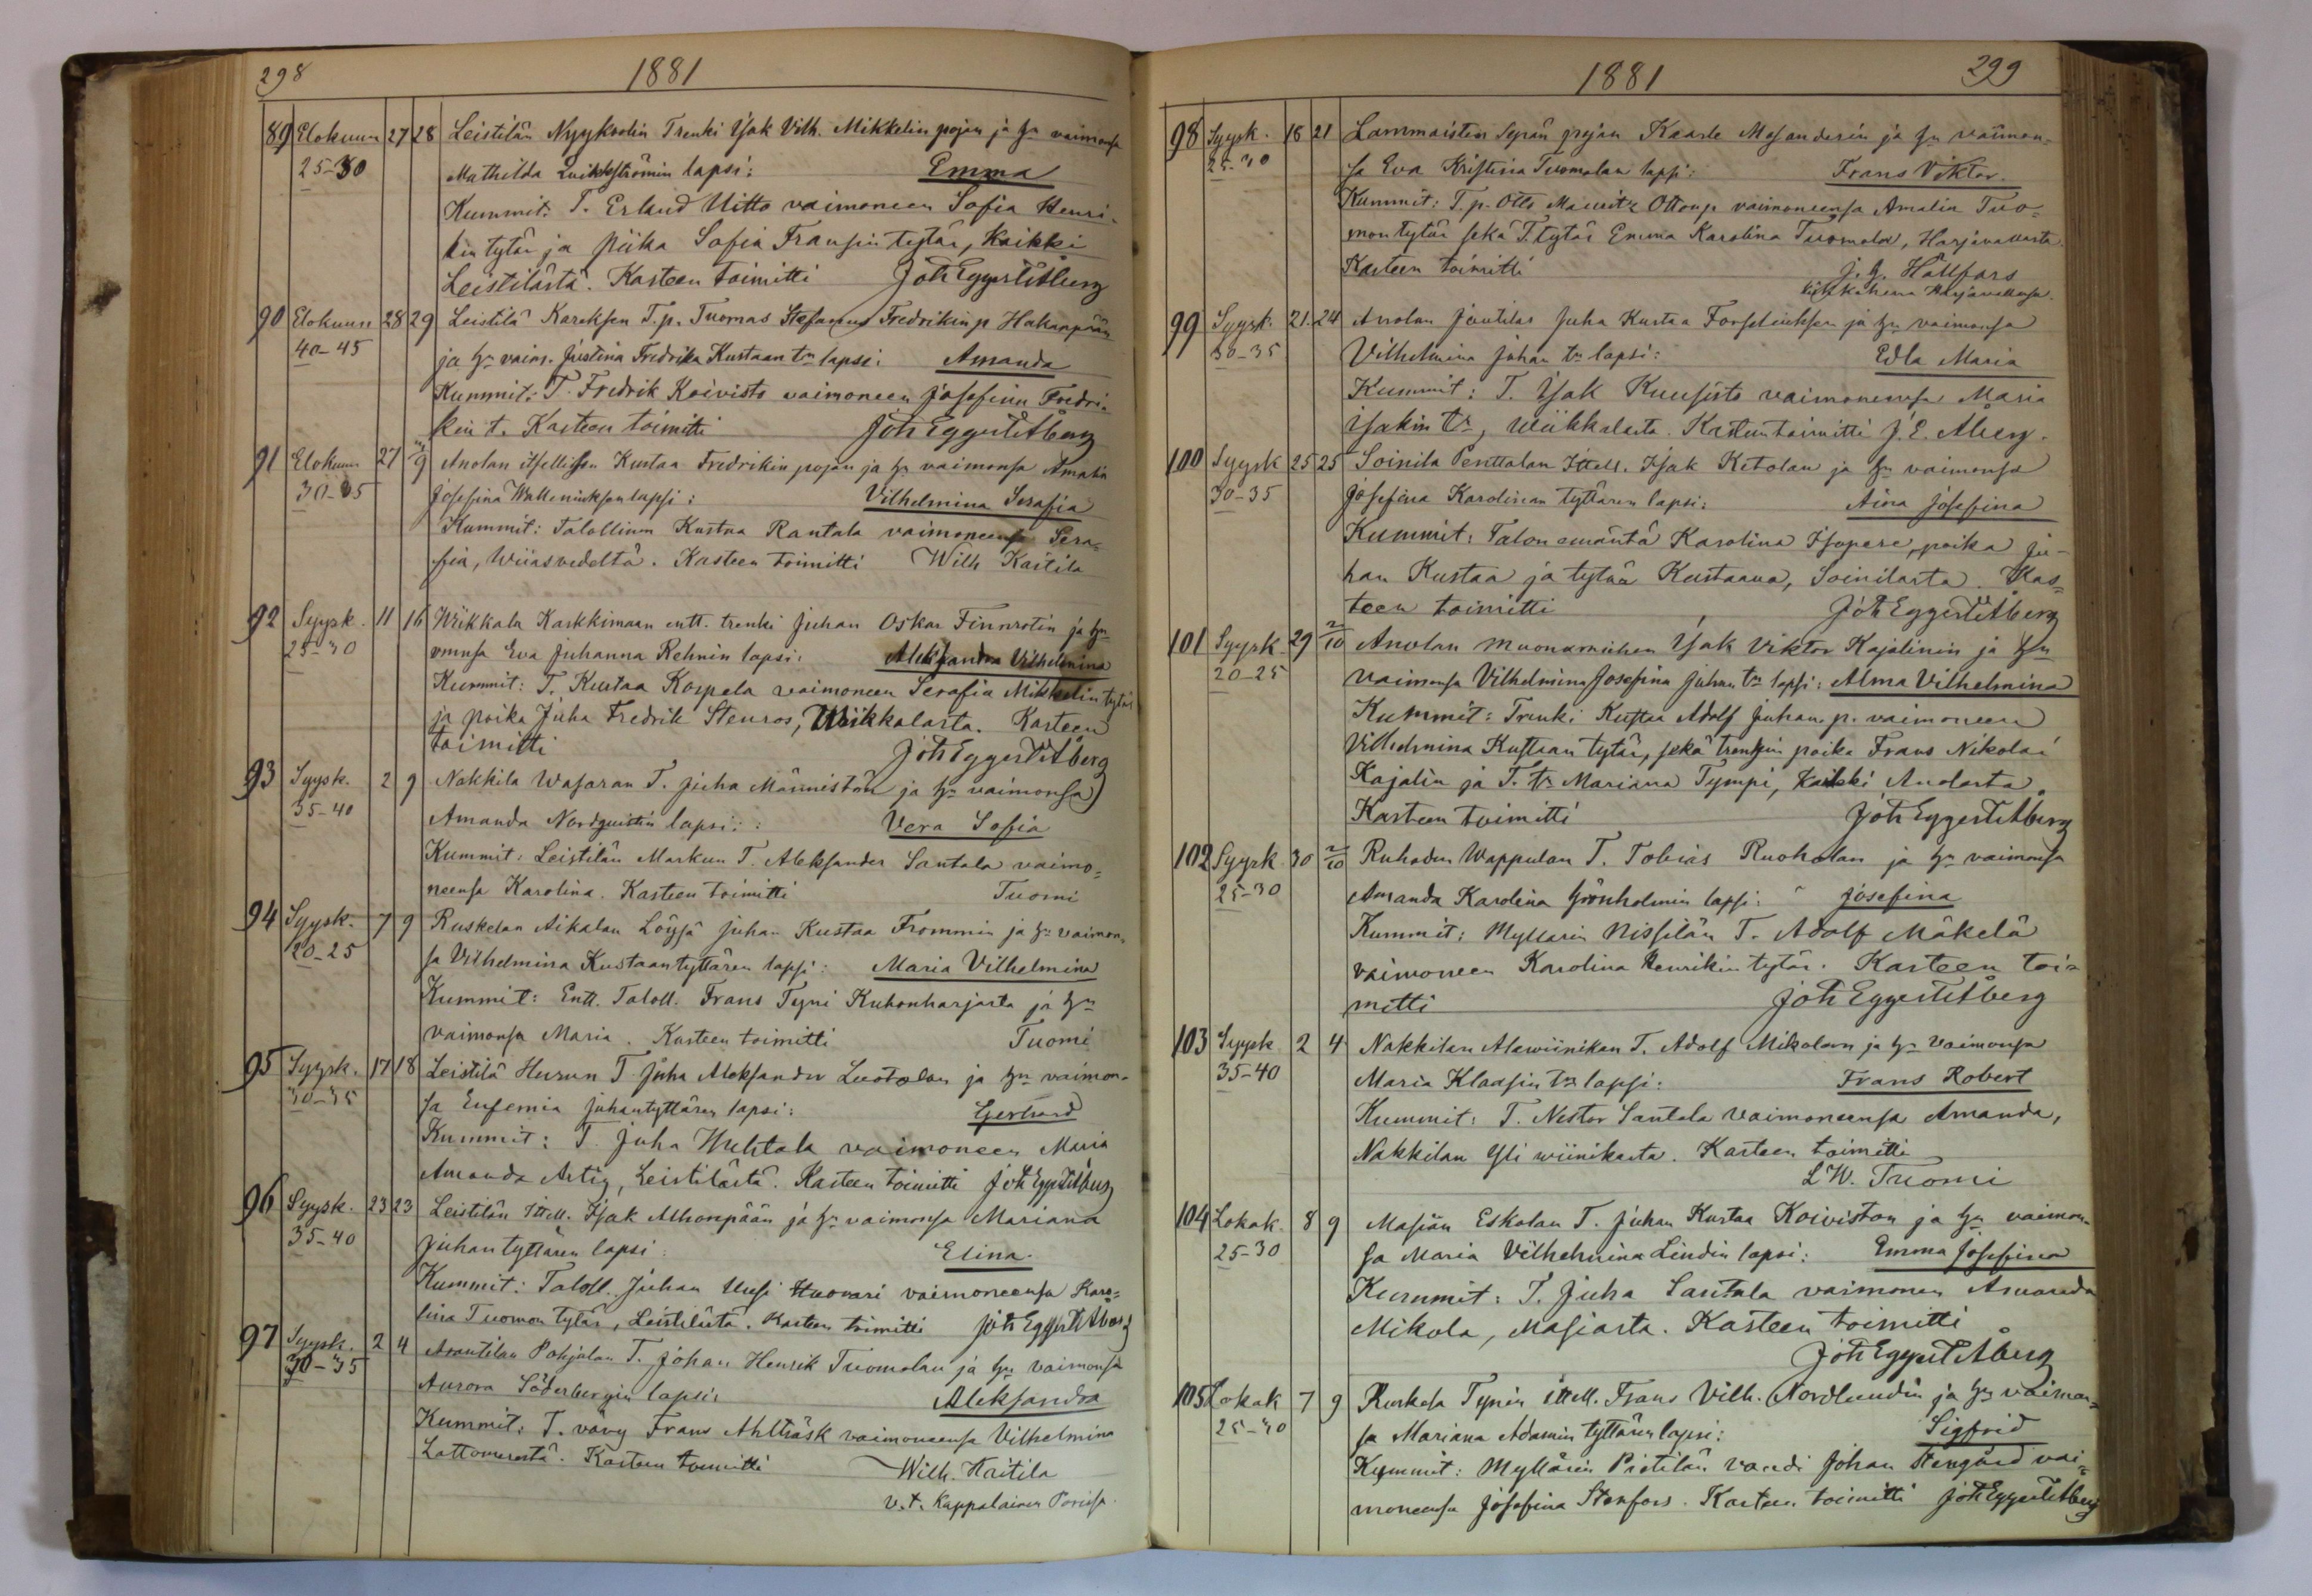 298
1881
89 Elokuun 27 28 Leistilän Nyykoolin Trenki Isak Vilh. Mikkelin pojan ja hn vaimonsa
25-30 Mathilda Lvikkströmin lapsi: Emma
Kummit: T. Erland Uitto vaimoneen Sofia Henri-
kin tytär ja piika Sofia Fransin tytär, Kaikki
Leistilästä. Kasteen toimitti Joh Eggert Åberg
90 Elokuun 28 29 Leistilä Kareksen T.p. Tuomas Stefanus Fredrikin p Hakanpään
40-45 ja hn vaim. Justina Fredrika Kustaan tn lapsi: Amanda
Kummit: T. Fredrik Koivisto vaimoneen Josefina Fredri-
kin t. Kasteen toimitti Joh Eggert Åberg
91 Elokuun 27 Anolan itsellisen Kustaa Fredrikin pojan ja hn vaimonsa Amalia
30-35 Josefina Walleniuksen lapsi: Vilhelmina Serafia
Kummit: Talollinen Kustaa Rantala vaimoneensa Sera-
fia, Wiiasvedeltä. Kasteen toimitti Wilh Kaitila
92 Syysk. 11 16 Wiikkala Karkkimaan entt. trenki Juhan Oskar Finnrotin ja hn
25-30 vmnsa Eva Juhanna Rehnin lapsi: Aleksandra Vilhelmina
Kummit: T. Kustaa Korpela vaimoneen Serafia Mikkelin tytär
ja poika Juha Fredrik Stenros, Wiikkalasta. Kasteen
toimitti Joh Eggert Åberg
93 Syysk. 2 9 Nakkila Wasaran T. Juha Männistön ja hn vaimonsa
35-40 Amanda Nordqvistin lapsi: Vera Sofia
Kummit: Leistilän Markun T. Aleksander Santala vaimo-
neensa Karolina. Kasteen toimitti Tuomi
94 Syysk. 7 9 Ruskelan Aikalan Löysä Juhan Kustaa Frommin ja hn vaimon-
20-25 sa Vilhelmina Kustaantyttären lapsi: Maria Vilhelmina
Kummit: Entt. Taloll. Frans Tyni Kukonharjasta ja hn
vaimonsa Maria. Kasteen toimitti Tuomi
95 Syysk. 17 18 Leistilä Hurun T. Juha Aleksander Luotolan ja hn vaimon-
30-35 sa Eufemia Juhantyttären lapsi: Gerhard
Kummit: T. Juha Huhtala vaimoneen Maria
Amanda Artig, Leistilästä. Kasteen toimitti Joh Eggert Åberg
96 Syysk. 23 23 Leistilän Itsell. Isak Alhonpään ja hn vaimonsa Mariana
35-40 Juhantyttären lapsi: Elina.
Kummit: Taloll. Juhan Uusi Huovari vaimoneensa Karo-
lina Tuomon tytär, Leistilästä. Kasteen toimitti Joh Eggert Åberg
97 Syysk. 2 4 Arantilan Pohjalan T. Johan Henrik Tuomolan ja hn vaimonsa
30-35 Aurora Söderbergin lapsi: Aleksandra
Kummit: T. vävy Frans Ahlträsk vaimoneensa Vilhelmina
Lattomerestä. Kasteen toimitti Wilh. Kaitila
v.t. Kappalainen Porissa.
1881
299
98 Syysk. 18 21 Lammaisten Sepän pojan Kaarle Masanderin ja hn vaimon-
25-30 sa Eva Kristina Tuomolan lapsi: Frans Viktor.
Kummit: T.p. Otto Mauritz Ottonp vaimoneensa Amalia Tuo-
mon tytär sekä T. tytär Emma Karolina Tuomola, Harjavallasta
Kasteen toimitti J. G. Hällfors
kirkkoherra Harjavallassa.
99 Syysk. 21 24 Anolan Jautilas Juha Kustaa Forseliuksen ja hn vaimonsa
30-35 Vilhelmina Johan tn lapsi: Edla Maria
Kummit: T. Isak Kuusisto vaimoneensa Maria
Isakin tr, Wiikkalasta. Kasteen toimitti J. E. Åberg.
100 Syysk 25 25 Soinila Penttalan Itsell. Isak Ketolan ja hn vaimonsa
30-35 Josefina Karolinan tyttären lapsi: Aina Josefina
Kummit: Talon emäntä Karolina Isopere, poika Ju-
han Kustaa ja tytär Kustaava, Soinilasta. Kas-
teen toimitti Joh Eggert Åberg
101 Syysk. 29 2/10 Anolan Muonamiehen Isak Viktor Kajalinin ja hn
20-25 vaimonsa Vilhelmina Josefina Juhan tn lapsi: Alma Vilhelmina
Kummit: Trenki Kustaa Adolf Juhan. p. vaimoneen
Vilhelmina Kustaan tytär, sekä trenkin poika Frans Nikolai
Kajalin ja T. tr Mariana Tympi, Kaikki Anolasta.
Kasteen toimitti Joh Eggert Åberg
102 Syysk 30 2/10 Ruhaden Wappulan T. Tobias Ruoholan ja hn vaimonsa
25-30 Amanda Karolina Grönholmin lapsi: Josefina
Kummit: Myllärin Nissilän T. Adolf Mäkelä
vaimoneen Karolina Henrikin tytär. Kasteen toi-
mitti Joh Eggert Åberg
103 Syysk 2 4 Nakkilan Alawiinikan T. Adolf Mikolan ja hn vaimonsa
35-40 Maria Klaasin tn lapsi: Frans Robert
Kummit: T. Nestor Santala vaimoneensa Amanda,
Nakkilan Yli wiinikasta. Kasteen toimitti
L W. Tuomi
104 Lokak. 8 9 Masian Eskolan T. Juhan Kustaa Koiviston ja hn vaimon-
25-30 sa Maria Vilhelmina Lindin lapsi: Emma Josefina
Kummit: T. Juha Santala vaimoneen Amanda
Mikola, Masiasta. Kasteen toimitti
Joh Eggert Åberg
105 Lokak 7 9 Ruskela Tynin itsell. Frans Vilh. Nordlundin ja hn vaimon-
25-30 sa Mariana Adamin tyttären lapsi: Sigfrid
Kummit: Myllärin Pietilän vandi Johan Stengård vai-
moneensa Josefina Stenfors. Kasteen toimitti Joh Eggert Åberg